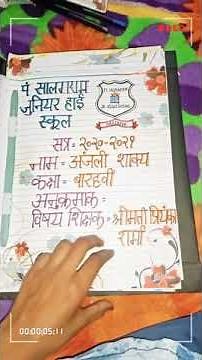 पं सालगराम
जुनियर हाई
स्कूल
सत्र = २०२०-२०२१
नाम = अंजली शाक्य
कक्षा = बारहवी
अनुक्रमांक =
विषय शिक्षक = श्रीमती प्रियंका
शर्मा
00:00:05:11